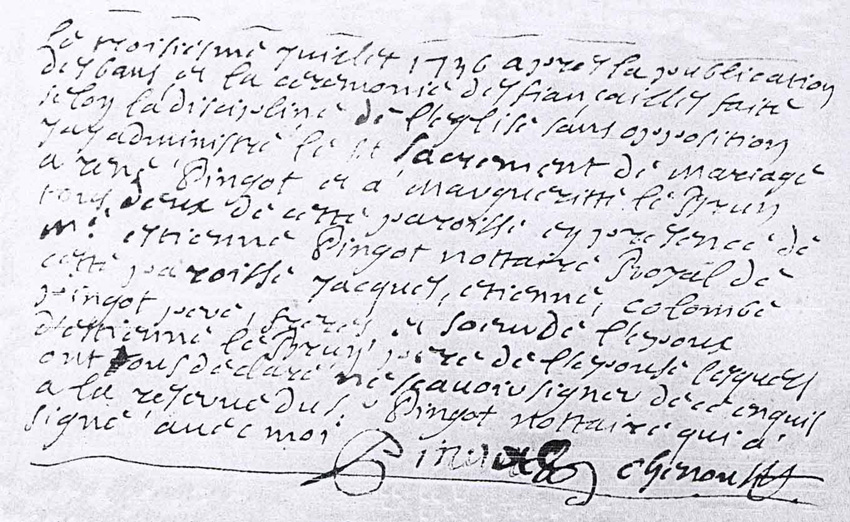 Le troisiéme juillet 1736 apres la publication
des bans et la ceremonie des fiançailles faite
selon la discipline de l'eglise sans opposition
j'ay administré le st sacrement de mariage
a rené Pingot et a Margueritte le Brun
tous deux de cette paroisse en presence de
me. estienne Pingot nottaire Royal de
cette paroisse jacques, etienne, colombe
pingot pere, freres, et soeur de l'epoux
d'estienne le Brun pere de l'epouse lesquels
ont tous declaré ne sçavoir signer de ce enquis
a la reserve du s. Pingot nottaire qui a
signé avec moi
Pingot chenou